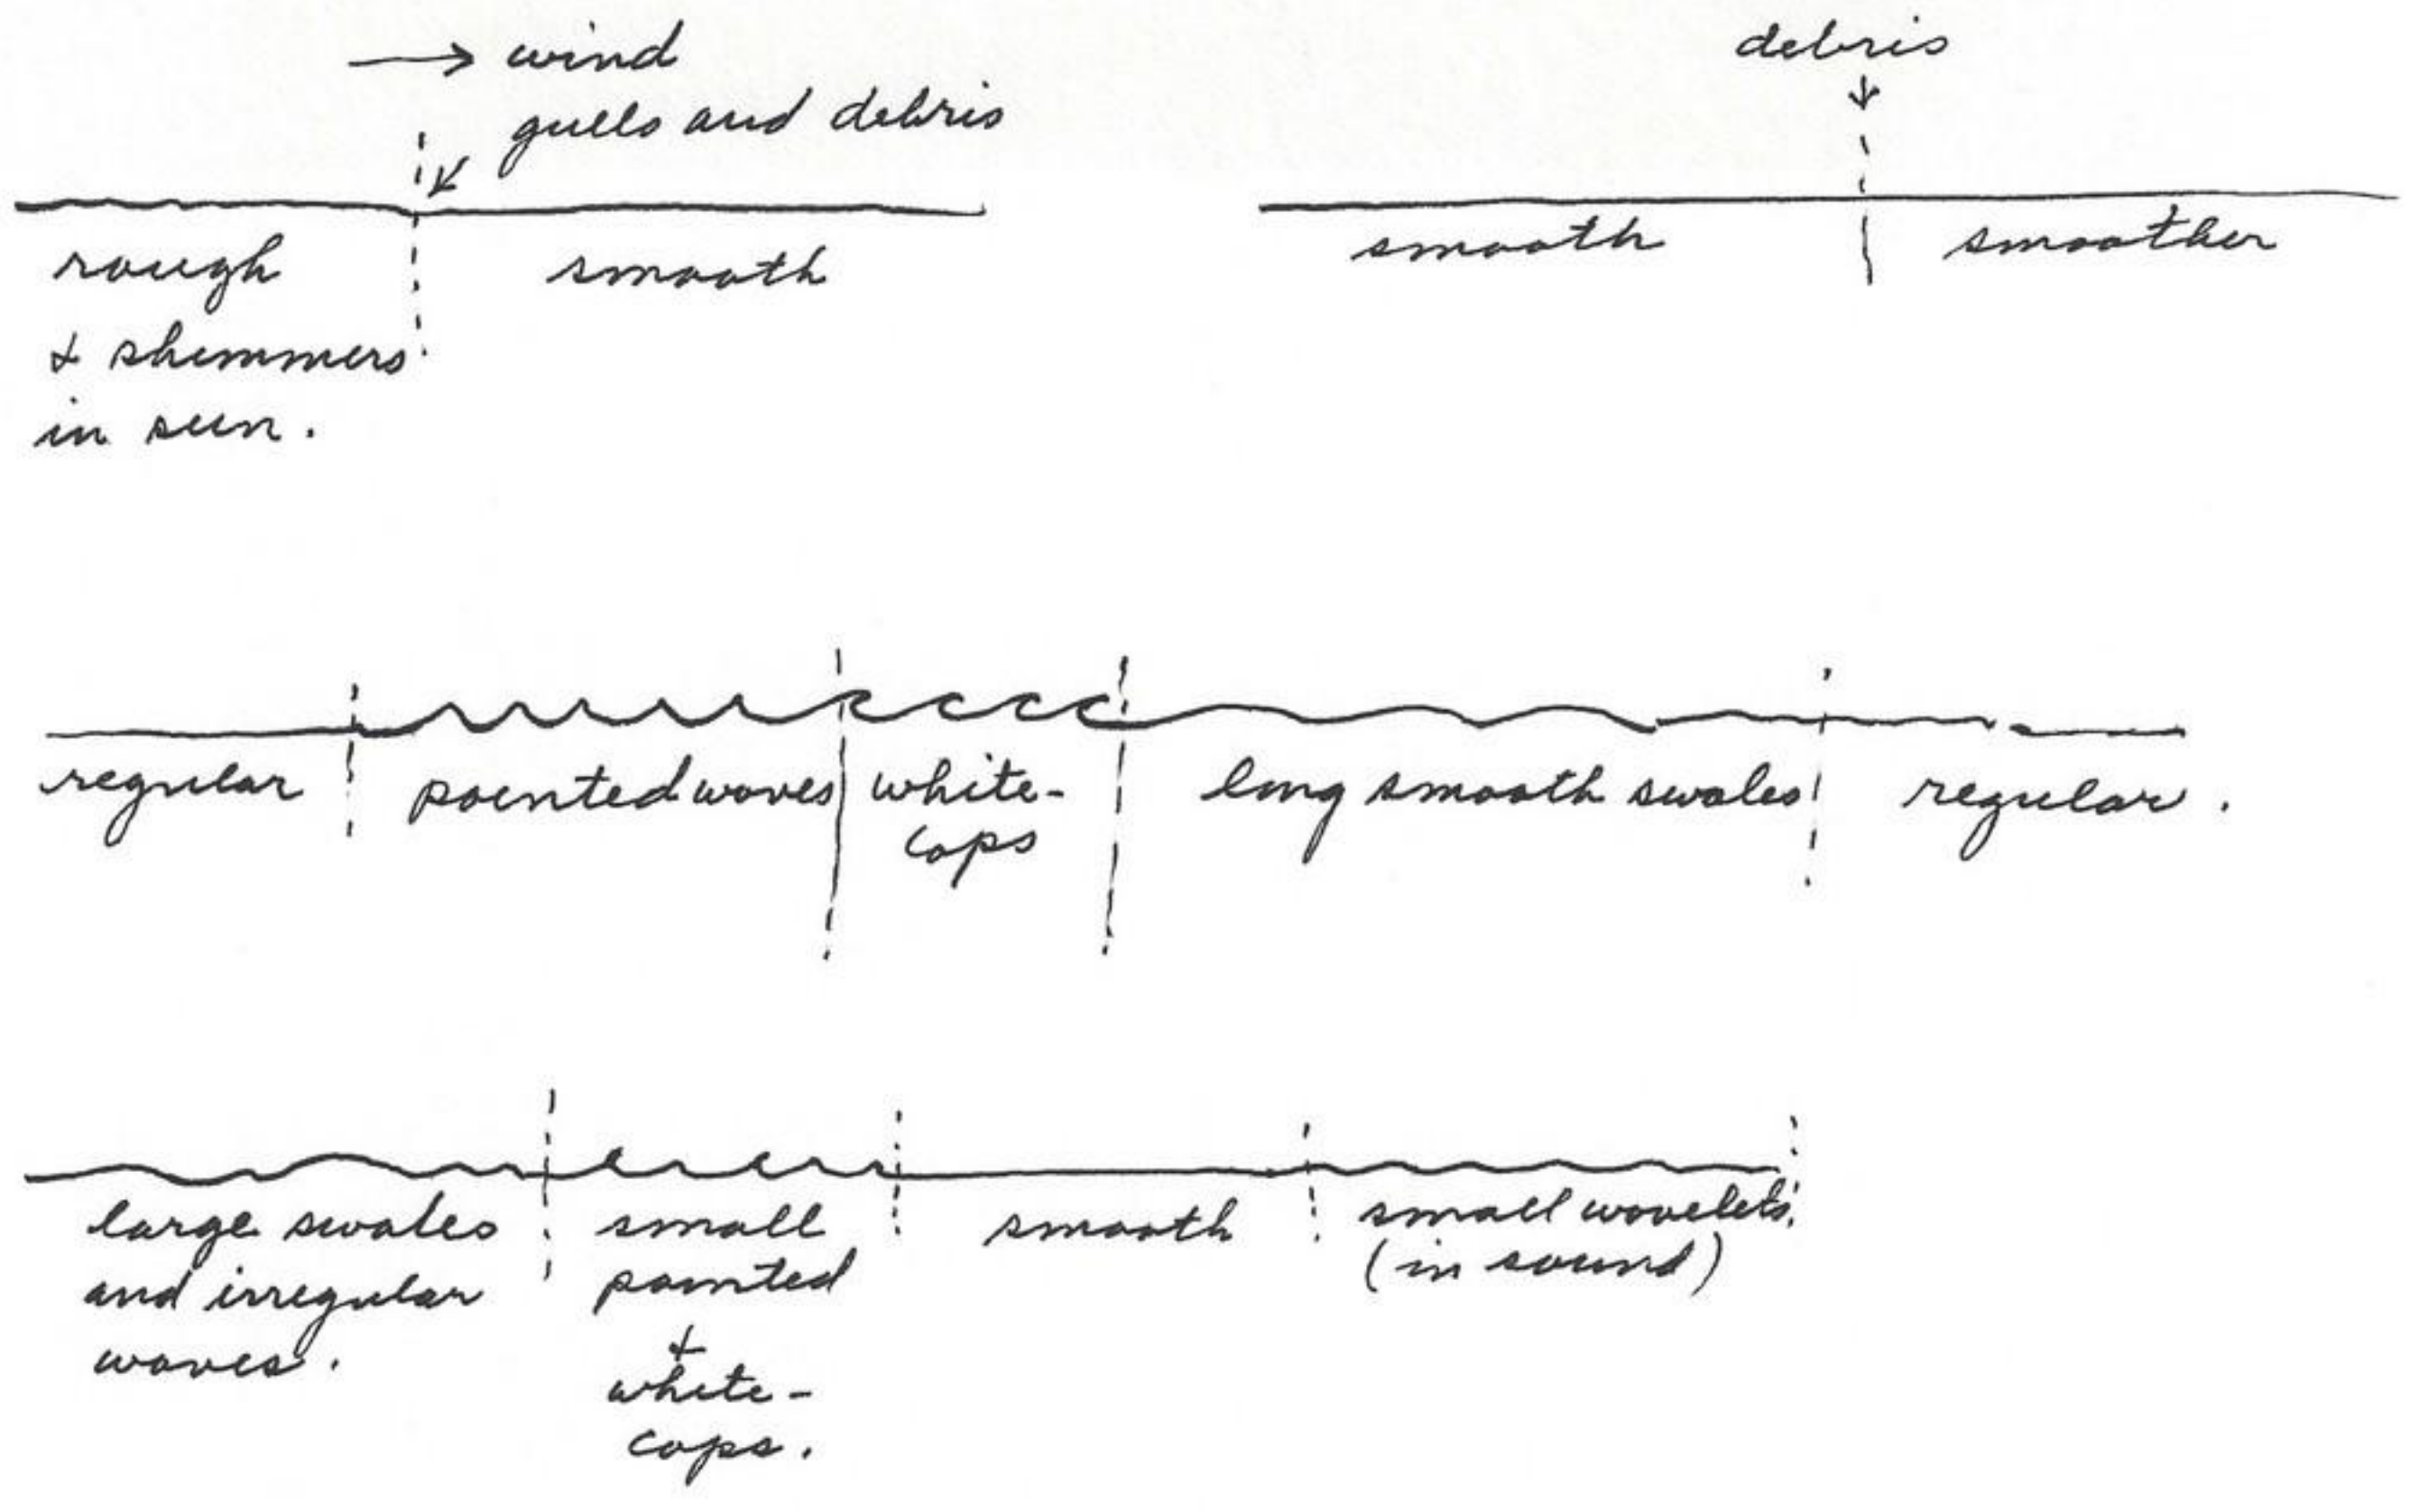 → wind
gulls and debris
rough
& shimmers
in sun.
smooth
debris
smooth
smoother
regular
pointed waves
white-
caps
long smooth swales
regular.
large swales
and irregular
waves.
small
pointed
&
white-
caps.
smooth
small wavelets
(in sound)